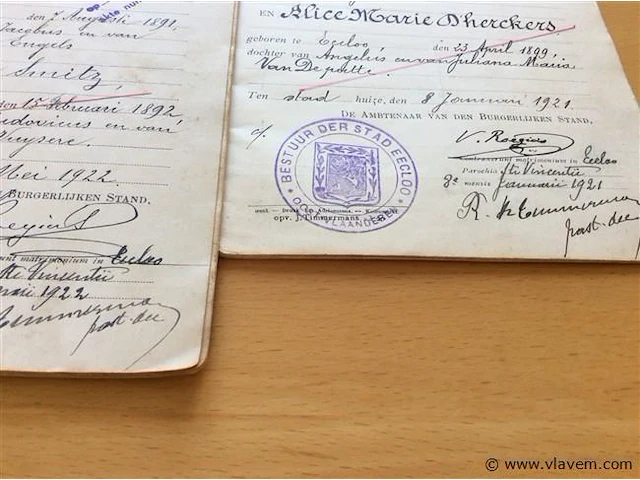 den 2 Augusti 1891,
Jacobus en van
Engels
Smitz,
den 15 Februari 1892,
Ludovicus en van
Mei 1922.
BURGERLIJKEN STAND,
matrimonium in Eecloo
Sti Vincentii
1922
past. dec
EN Alice Marie D'herckers
geboren te Eecloo den 23 April 1899,
dochter van Angelus en van Juliana Maria
Van De putte.
Ten stad huize, den 8 Januari 1921.
DE AMBTENAAR VAN DEN BURGERLIJKEN STAND,
V. Roegiers
BESTUUR DER STAD EECLOO
OOST VLAANDEREN
Contraxerunt matrimonium in Eecloo
Parochia Sti Vincentii
mensis Januarii 1921
opv. J. Timmermans
past. dec
© www.vlavem.com